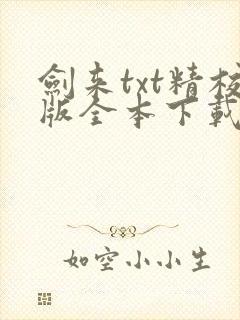 劍来txt精校
版全本下載
如空小小生